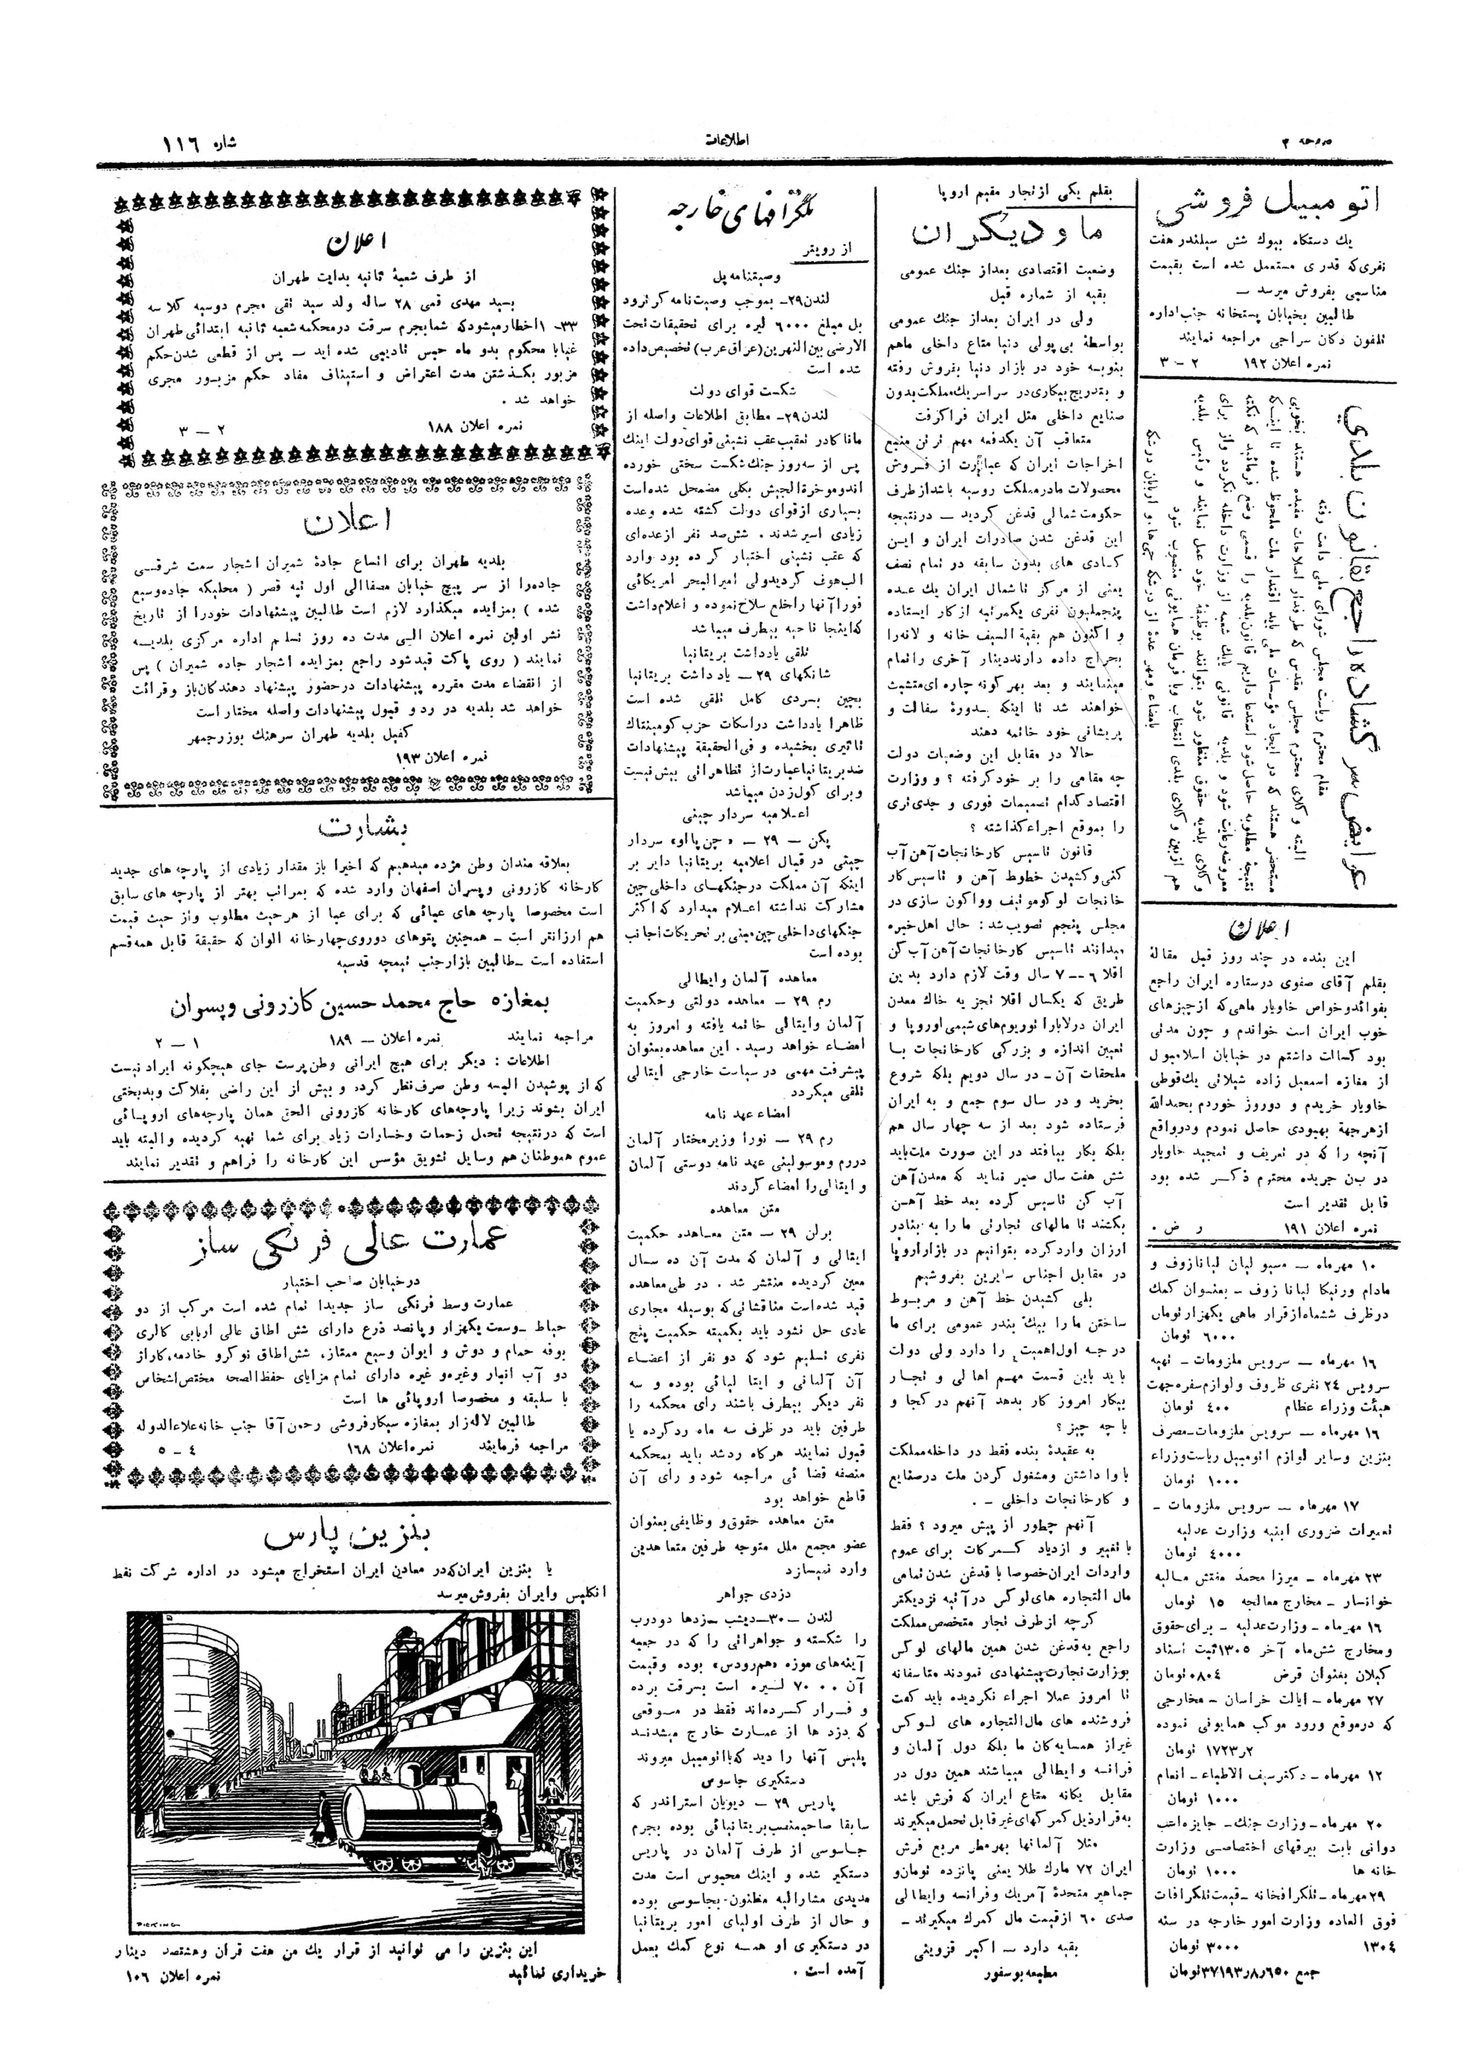 صفحه ۴
اطلاعات
شماره ۱۱۶
اتومبیل فروشی
یك دستگاه بیوك شش سیلندر هفت
نفری که قدری مستعمل شده است بقیمت
مناسبی بفروش میرسد —
طالبین بخیابان پستخانه جنب اداره
تلفون دکان سراجی مراجعه نمایند
نمره اعلان ۱۹۲ ۲ — ۳
سواد عریضه سرگشاده راجع بقانون بلدی
مقام محترم ریاست مجلس شورای ملی دامت رفته
البته وکلای محترم مجلس مقدس که طرفدار اصلاحات مفیده هستند بخوبی
مستحضر هستند که در ایجاد مؤسسات ملی باید اقتدار ملت ملحوظ شده تا اینکه
نتیجهٔ مطلوبه حاصل شود استدعا داریم قانون بلدیه را قسمی وضع فرمائید که نکته
معروضه رعایت شود و بلدیه قانونی بایك شعبه از وزارت داخله نگردد و از برای
وکلای بلدیه حقوق منظور شود بتوانند بوظیفهٔ خود عمل نمایند و رئیس بلدیه
هم از بین وکلای بلدی انتخاب و با فرمان همایونی منصوب شود
بامضاء ومهر عدهٔ از درشکه چی ها و اربابان درشکه
اعلان
این بنده در چند روز قبل مقالهٔ
بقلم آقای صفوی در ستاره ایران راجع
بفوائد و خواص خاویار ماهی که از چیزهای
خوب ایران است خواندم و چون مدتی
بود کسالت داشتم در خیابان اسلامبول
از مغازه اسمعیل زاده شیلاتی یك قوطی
خاویار خریدم و دو روز خوردم بحمدالله
از هر جهة بهبودی حاصل نمودم و در واقع
آنچه را که در تعریف و تمجید خاویار
در بن جریده محترم ذکر شده بود
قابل تقدیر است
نمره اعلان ۱۹۱ ر ض .
۱۰ مهرماه — مسیو لیان لیانازوف و
مادام ورنیکا لیانا زوف — بعنوان کمك
در ظرف ششماه از قرار ماهی یکهزار تومان
۶۰۰۰ تومان
۱۶ مهرماه — سرویس ملزومات — تهیه
سرویس ۲۴ نفری ظروف و لوازم سفره جهت
هیئت وزراء عظام ۴۰۰ تومان
۱۶ مهرماه — سرویس ملزومات — مصرف
بنزین وسایر لوازم اتومبیل ریاست وزراء
۱۰۰۰ تومان
۱۷ مهرماه — سرویس ملزومات —
تعمیرات ضروری ابنیه وزارت عدلیه
۴۰۰۰ تومان
۲۳ مهرماه — میرزا محمد مفتش مالیه
خوانسار — مخارج معالجه ۱۵ تومان
۱۶ مهرماه — وزارت عدلیه — برای حقوق
ومخارج شش ماه آخر ۱۳۰۵ ثبت اسناد
گیلان بعنوان قرض ۵۸۰۴ تومان
۲۷ مهرماه — ایالت خراسان — مخارجی
که در موقع ورود موکب همایونی نموده
۱۷۲۳ر۲ تومان
۱۲ مهرماه — دکتر سیف الاطباء — انعام
۱۰۰۰ تومان
۲۰ مهرماه — وزارت جنك — جایزه اسب
دوانی بابت بیرقهای اختصاصی وزارت
خانه ها ۱۰۰۰ تومان
۲۹ مهرماه — تلگرافخانه — قیمت تلگرافات
فوق العاده وزارت امور خارجه در سنه
۱۳۰۴ ۳۰۰۰ تومان
جمع ۳۷۱۹۳ر۸ر۶۵۰ تومان
بقلم یکی از تجار مقیم اروپا
ما و دیگران
وضعیت اقتصادی بعد از جنك عمومی
بقیه از شماره قبل
ولی در ایران بعد از جنك عمومی
بواسطهٔ بی پولی دنیا متاع داخلی ما هم
بنوبه خود در بازار دنیا بفروش رفته
و بتدریج بیکاری در سراسر یك مملکت بدون
صنایع داخلی مثل ایران فرا گرفت
متعاقب آن یکدفعه مهم ترین منبع
اخراجات ایران که عبارت از فروش
محصولات ما در مملکت روسیه باشد از طرف
حکومت شمالی قدغن گردید — در نتیجه
این قدغن شدن صادرات ایران و این
کسادی های بدون سابقه دو تمام نصف
یعنی از مرکز تا شمال ایران یك عده
پنجملیون نفری یکمرتبه از کار ایستاده
و اکنون هم بقیة السیف خانه و لانه را
بحراج داده دارند دینار آخری را تمام
مینمایند و بعد بهر گونه چاره ای متشبث
خواهند شد تا اینکه بدورهٔ سفالت و
پریشانی خود خاتمه دهند
حالا در مقابل این وضعیات دولت
چه مقامی را بر خود گرفته ؟ و وزارت
اقتصاد کدام تصمیمات فوری و جدی تری
را بموقع اجراء گذاشته ؟
قانون تاسیس کارخانجات آهن آب
کنی و کشیدن خطوط آهن و تاسیس کار
خانجات لوکوموتیف و واگون سازی در
مجلس پنجم تصویب شد : حال اهل خبره
میدانند تاسیس کارخانجات آهن آب کن
اقلا ۶ — ۷ سال وقت لازم دارد بدین
طریق که یکسال اقلا تجزیه خاك معدن
ایران در لابارا توریوم های شیمی اوروپا و
تعیین اندازه و بزرگی کارخانجات بـا
ملحقات آن — در سال دویم بلکه شروع
بخرید و در سال سوم جمع و به ایران
فرستاده شود بعد از سه چهار سال هم
بلکه بکار بیافتد در این صورت ملت باید
شش هفت سال صبر نماید که معدن آهن
آب کن تاسیس کرده بعد خط آهن
بکشند تا مالهای تجارتی ما را به بنادر
ارزان وارد کرده بتوانیم در بازار اروپا
در مقابل اجناس سایرین بفروشیم
بلی کشیدن خط آهن و مربوط
ساختن ما را بیك بندر عمومی برای ما
درجه اول اهمیت را دارد ولی دولت
باید باین قسمت مهم اهالی و تجار
بیکار امروز کار بدهد آنهم در کجا و
با چه چیز ؟
به عقیدهٔ بنده فقط در داخله مملکت
با وا داشتن ومشغول کردن ملت در صنایع
و کارخانجات داخلی — .
آنهم چطور از پیش میرود ؟ فقط
با تغییر و ازدیاد گمرکات برای عموم
واردات ایران خصوصا با قدغن شدن تمامی
مال التجاره های لوکس در آتیه نزدیکتر
گرچه از طرف تجار متخصص مملکت
راجع به قدغن شدن همین مالهای لوکس
بوزارت تجارت پیشنهادی نمودند متاسفانه
تا امروز عملا اجراء نگردیده باید گفت
فروشنده های مال التجاره های لوکس
غیر از همسایه گان ما بلکه دول آلمان و
فرانسه و ایطالی میباشند همین دول در
مقابل یگانه متاع ایران که فرش باشد
به قرار ذیل گمرکهای غیر قابل تحمل میگیرند
مثلا آلمانها بهر مطر مربع فرش
ایران ۷۲ مارك طلا یعنی پانزده تومان و
جماهیر متحدهٔ آمریك و فرانسه و ایطالی
صدی ۶۰ از قیمت مال گمرك میگیرند —
بقیه دارد — اکبر قزوینی
مطبعه بوسفور
تلگرافهای خارجه
از رویتر
وصیتنامه بل
لندن ۲۹ — بموجب وصیت نامه گرترود
بل مبلغ ۶۰۰۰ لیره برای تحقیقات تحت
الارضی بین النهرین (عراق عرب) تخصیص داده
شده است
شکست قوای دولت
لندن ۲۹ — مطابق اطلاعات واصله از
ماناگا در تعقیب عقب نشینی قوای دولت اینك
پس از سه روز جنك شکست سختی خورده
اند و موخرة الجیش بکلی مضمحل شده است
بسیاری از قوای دولت کشته شده و عده
زیادی اسیر شدند . ششصد نفر از عده ای
که عقب نشینی اختیار کرده بود وارد
البلوف گردید ولی امیر البحر امریکائی
فورا آنها را خلع سلاح نموده و اعلام داشت
که اینجا ناحیه بیطرف میباشد
تلقی یادداشت بریتانیا
شانگهای ۲۹ — یادداشت بریتانیا
بچین بسردی کامل تلقی شده است
ظاهرا یادداشت در اسکات حزب کومینتانك
تاثیری نبخشیده و فی الحقیقة پیشنهادات
ضد بریتانیا عبارت از تظاهراتی بیش نیست
و برای گول زدن میباشد
اعلامیه سردار چینی
پکن — ۲۹ — « چن پااو » سردار
چینی در قبال اعلامیه بریتانیا دایر بر
اینکه آن مملکت در جنگهای داخلی چین
مشارکت نداشته اعلام میدارد که اکثر
جنگهای داخلی چین مبنی بر تحریکات اجانب
بوده است
معاهده آلمان و ایطالی
رم ۲۹ — معاهده دولتی و حکمیت
آلمان و ایتالی خاتمه یافته و امروز به
امضاء خواهد رسید . این معاهده بعنوان
پیشرفت مهمی در سیاست خارجی ایتالی
تلقی میگردد
امضاء عهد نامه
رم ۲۹ — نورا وزیر مختار آلمان
در رم و موسولینی عهد نامه دوستی آلمان
و ایتالی را امضاء کردند
متن معاهده
برلن ۲۹ — متن معاهده حکمیت
ایتالی و آلمان که مدت آن ده سال
معین گردیده منتشر شد . در طی معاهده
قید شده است مناقشاتی که بوسیله مجاری
عادی حل نشود باید بکمیته حکمیت پنج
نفری تسلیم شود که دو نفر از اعضاء
آن آلمانی و ایتا لیائی بوده و سه
نفر دیگر بیطرف باشند رای محکمه را
طرفین باید در ظرف سه ماه رد کرده یا
قبول نمایند هرگاه رد شد باید بمحکمه
منصفه قضائی مراجعه شود و رأی آن
قاطع خواهد بود
متن معاهده حقوق و وظایفی بعنوان
عضو مجمع ملل متوجه طرفین متعاهدین
وارد نمیسازد
دزدی جواهر
لندن — ۳۰ — دیشب دزدها دو درب
را شکسته و جواهراتی را که در جعبه
آینه های موزه « همرودس » بوده و قیمت
آن ۷۰۰۰ لیره است بسرقت برده
و فرار کرده اند فقط در موقعی
که دزد ها از عمارت خارج میشدند
پلیس آنها را دید که با اتومبیل میروند
دستگیری جاسوس
پاریس ۲۹ — دیویان استراندر که
سابقا صاحبمنصب بریتانیائی بوده بجرم
جاسوسی از طرف آلمان در پاریس
دستگیر شده و اینك محبوس است مدت
مدیدی مشارالیه مظنون بجاسوسی بوده
و حال از طرف اولیای امور بریتانیا
در دستگیری او همه نوع کمك بعمل
آمده است .
اعلان
از طرف شعبهٔ ثانیه بدایت طهران
بسید مهدی قمی ۲۸ ساله ولد سید تقی مجرم دوسیه کلاسه
۳۳ـ۱ اخطار میشود که شما بجرم سرقت در محکمه شعبه ثانیه ابتدائی طهران
غیابا محکوم بدو ماه حبس تادیبی شده اید — پس از قطعی شدن حکم
مزبور بگذشتن مدت اعتراض و استیناف مفاد حکم مزبور مجری
خواهد شد .
نمره اعلان ۱۸۸ ۲ — ۳
اعلان
بلدیه طهران برای اتساع جادهٔ شمیران اشجار سمت شرقی
جاده را از سر پیچ خیابان مصفا الی اول تپه قصر ( محلیکه جاده وسیع
شده ) بمزایده میگذارد لازم است طالبین پیشنهادات خود را از تاریخ
نشر اولین نمره اعلان الی مدت ده روز تسلیم اداره مرکزی بلدیه
نمایند ( روی پاکت قید شود راجع بمزایده اشجار جاده شمیران ) پس
از انقضاء مدت مقرره پیشنهادات در حضور پیشنهاد دهندگان باز و قرائت
خواهد شد بلدیه در رد و قبول پیشنهادات واصله مختار است
کفیل بلدیه طهران سرهنك بوزرجمهر
نمره اعلان ۱۹۳
بشارت
بعلاقه مندان وطن مژده میدهیم که اخیرا باز مقدار زیادی از پارچه های جدید
کارخانه کازرونی و پسران اصفهان وارد شده که بمراتب بهتر از پارچه های سابق
است مخصوصا پارچه های عبائی که برای عبا از هر حیث مطلوب و از حیث قیمت
هم ارزانتر است — همچنین پتوهای دوروی چهارخانه الوان که حقیقة قابل همه قسم
استفاده است — طالبین بازار جنب تیمچه قدسیه
بمغازه حاج محمد حسین کازرونی و پسران
مراجعه نمایند نمره اعلان — ۱۸۹ ۱ — ۲
اطلاعات : دیگر برای هیچ ایرانی وطن پرست جای هیچگونه ایراد نیست
که از پوشیدن البسه وطن صرف نظر کرده و بیش از این راضی بفلاکت و بدبختی
ایران بشوند زیرا پارچه های کارخانه کازرونی الحق همان پارچه های اروپائی
است که در نتیجه تحمل زحمات و خسارات زیاد برای شما تهیه گردیده و البته باید
عموم هموطنان هم وسایل تشویق مؤسس این کارخانه را فراهم و تقدیر نمایند
عمارت عالی فرنگی ساز
در خیابان صاحب اختیار
عمارت وسط فرنگی ساز جدیدا تمام شده است مرکب از دو
حیاط — وسعت یکهزار و پانصد ذرع دارای شش اطاق عالی اربابی کالری
بوفه حمام و دوش و ایوان وسیع ممتاز، شش اطاق نوکر و خادمه، گاراژ
دو آب انبار وغیره و غیره دارای تمام مزایای حفظ الصحه مختص اشخاص
با سلیقه و مخصوصا اروپائی ها است
طالبین لاله زار بمغازه سیگار فروشی رحمن آقا جنب خانه علاء الدوله
مراجعه فرمایند نمره اعلان ۱۶۸ ۴ — ۵
بنزین پارس
یا بنزین ایران که در معادن ایران استخراج میشود در اداره شرکت نفط
انگلیس و ایران بفروش میرسد
PICKING
این بنزین را می توانید از قرار یك من هفت قران و هشتصد دینار
خریداری نمائید نمره اعلان ۱۰۶